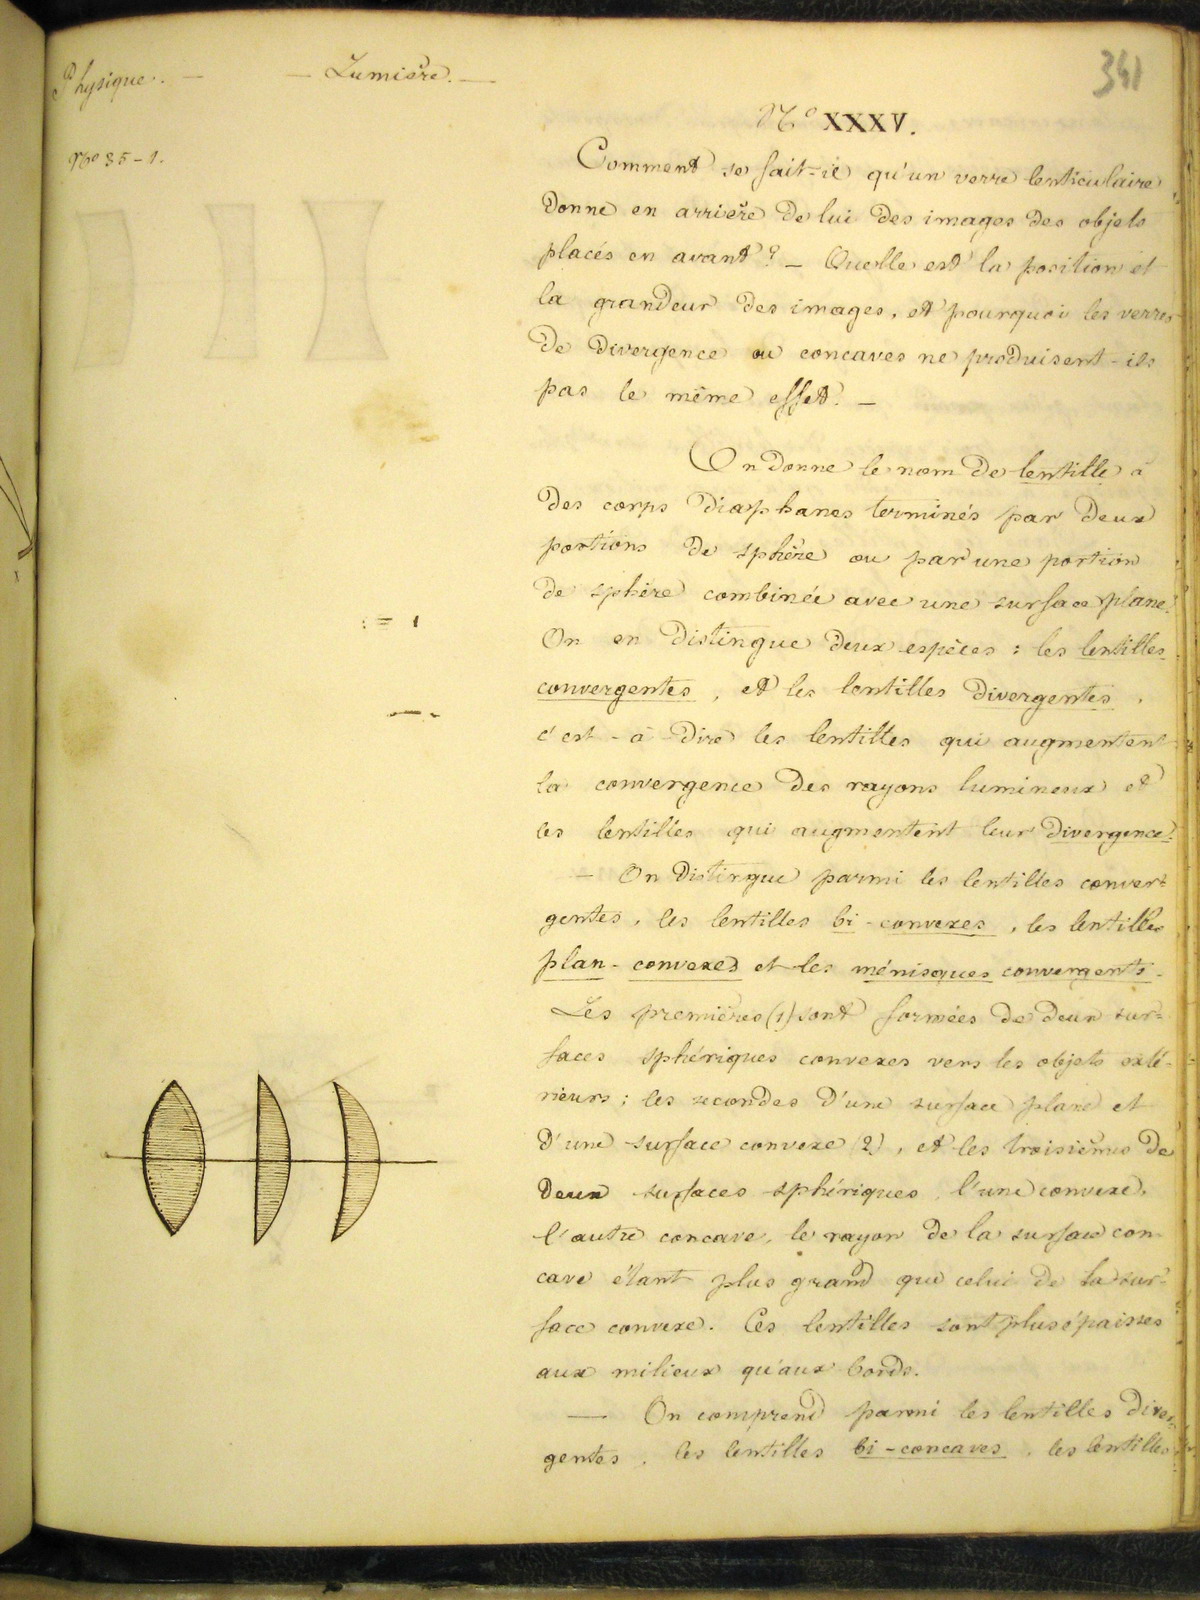 Physique. — — Lumière. —
341
N° 35 - 1.
N° XXXV.
Comment se fait-il qu'un verre lenticulaire
donne en arrière de lui des images des objets
placés en avant ? — Quelle est la position et
la grandeur des images, et pourquoi les verres
de divergence ou concaves ne produisent-ils
pas le même effet. —
On donne le nom de lentille à
des corps diaphanes terminés par deux
portions de sphère ou par une portion
de sphère combinée avec une surface plane.
On en distingue deux espèces : les lentilles
convergentes, et les lentilles divergentes,
c'est-à-dire les lentilles qui augmentent
la convergence des rayons lumineux et
les lentilles qui augmentent leur divergence.
— On distingue parmi les lentilles conver-
gentes, les lentilles bi-convexes, les lentilles
plan-convexes et les ménisques convergents.
Les premières (1) sont formées de deux sur-
faces sphériques convexes vers les objets exté-
rieurs ; les secondes d'une surface plane et
d'une surface convexe (2), et les troisièmes de
deux surfaces sphériques, l'une convexe,
l'autre concave, le rayon de la surface con-
cave étant plus grand que celui de la sur-
face convexe. Ces lentilles sont plus épaisses
aux milieux qu'aux bords.
— On comprend parmi les lentilles diver-
gentes, les lentilles bi-concaves, les lentilles